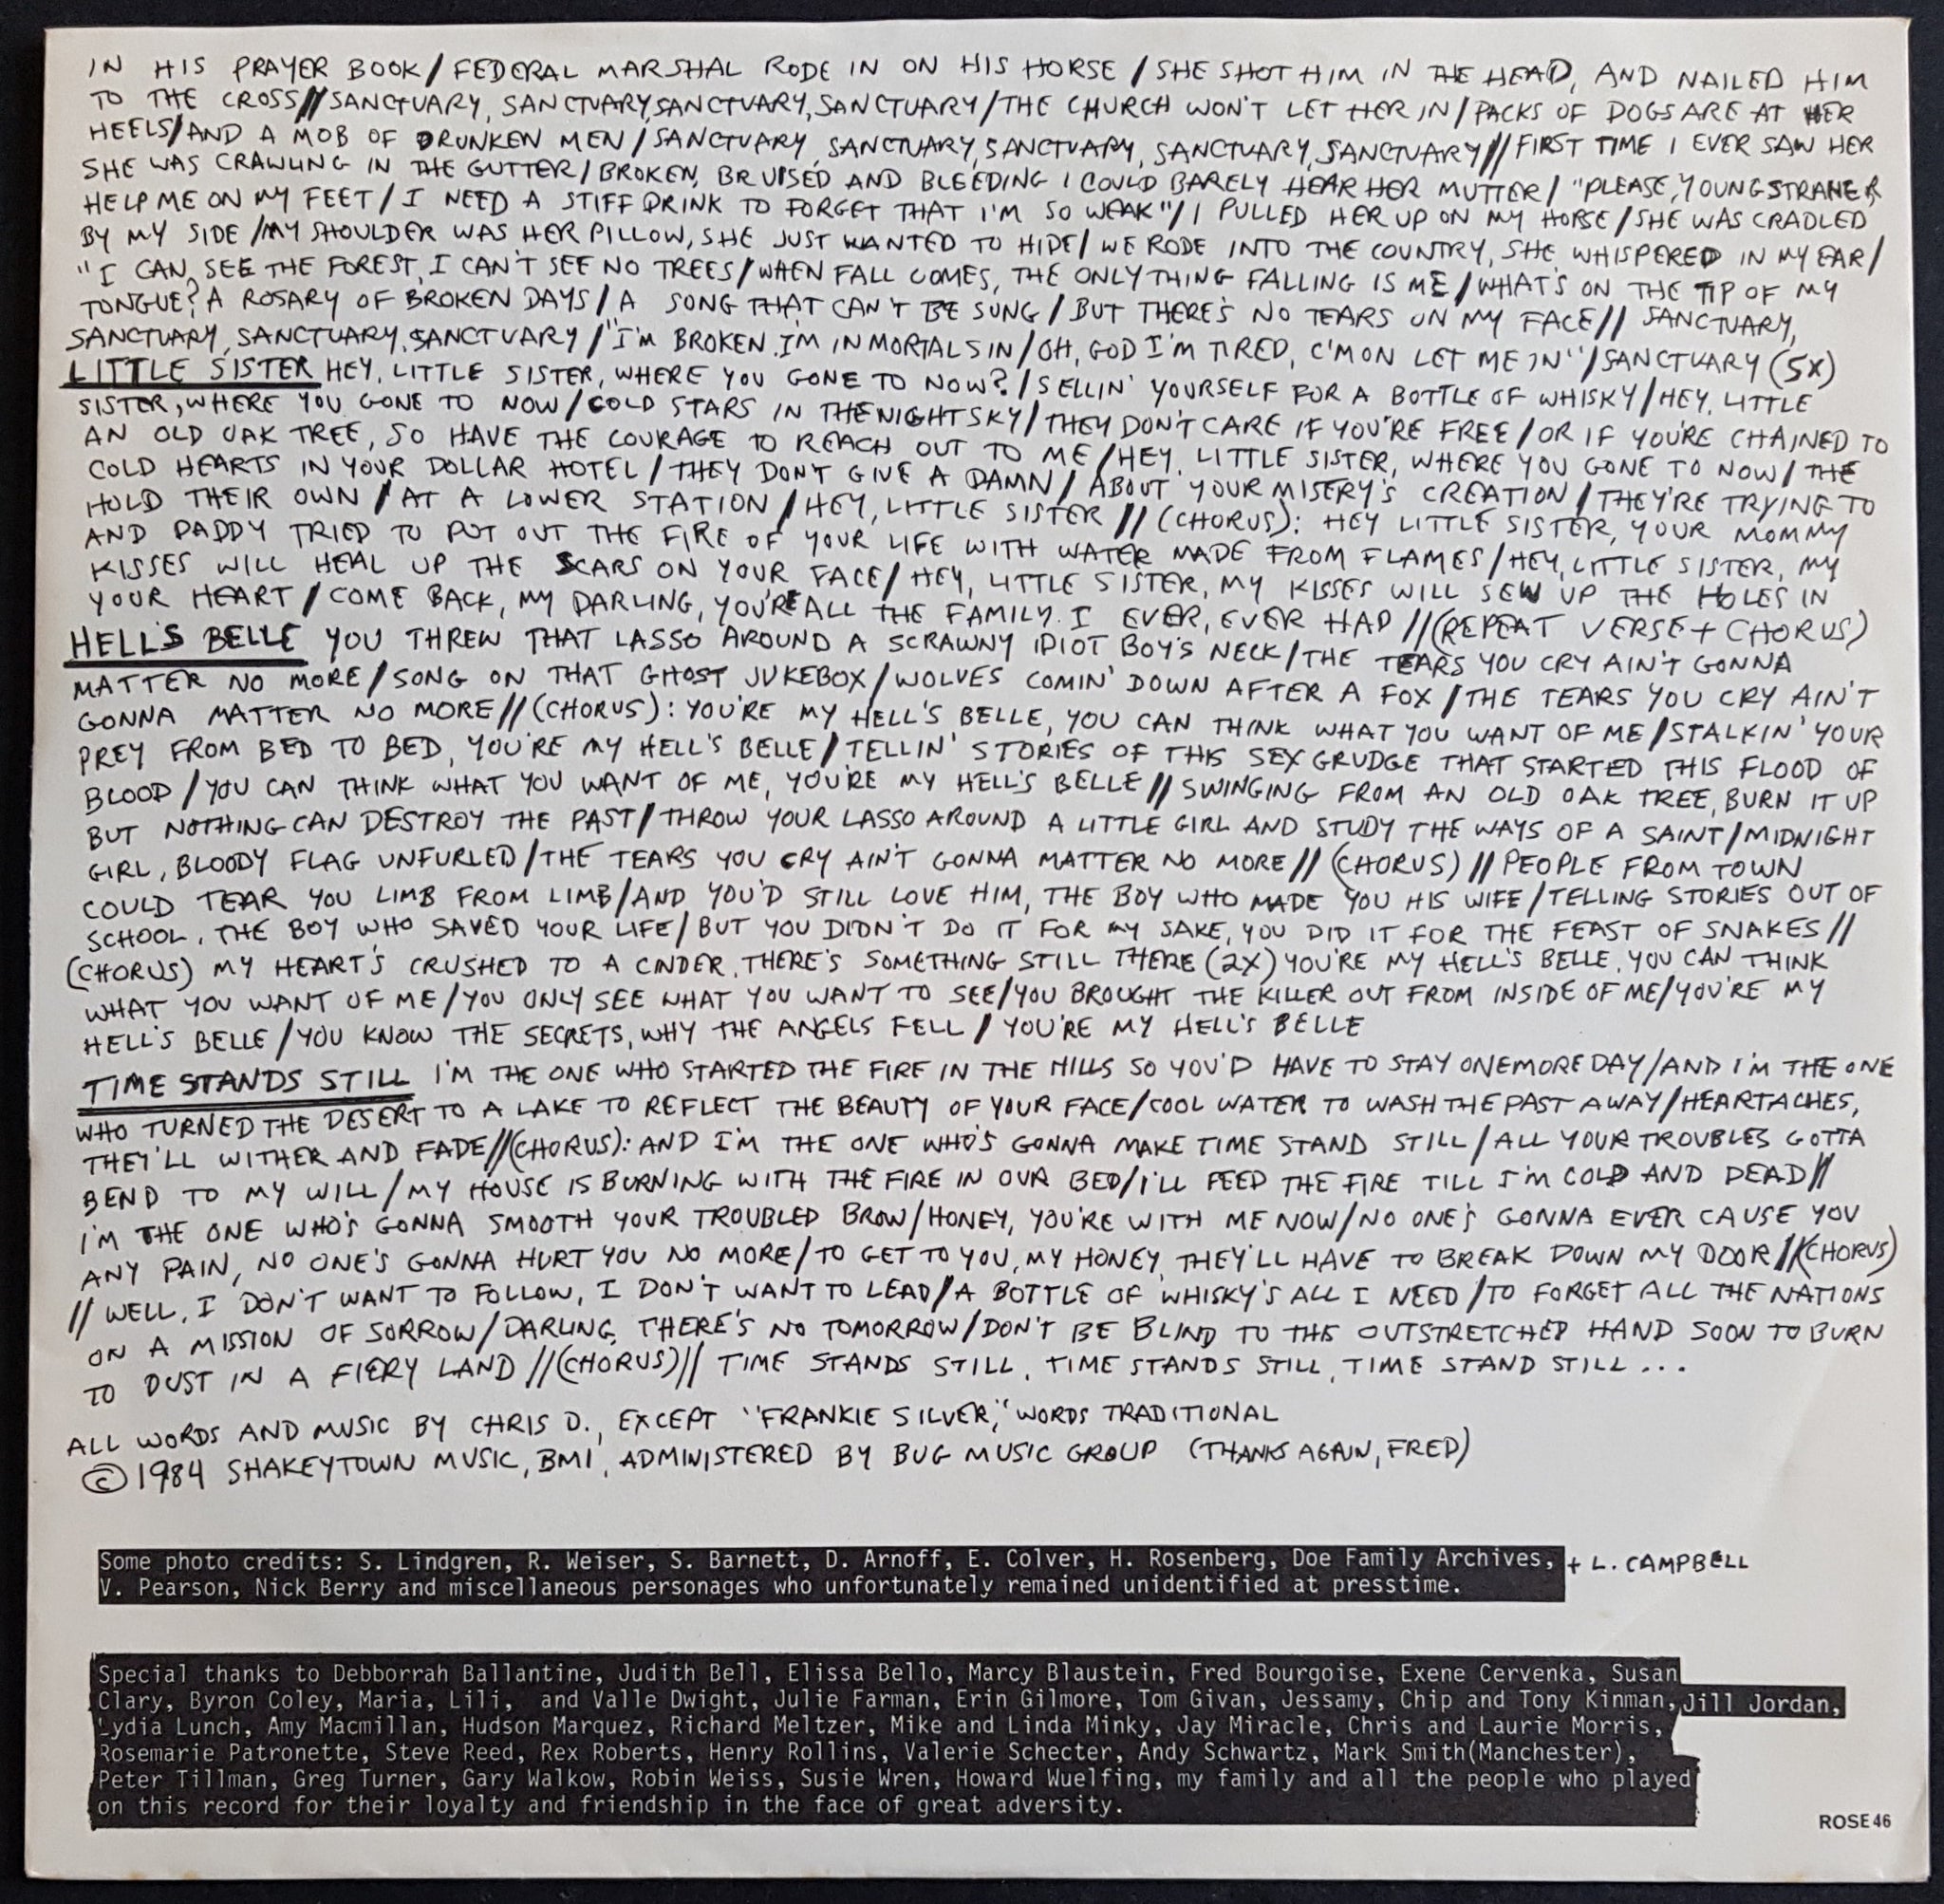 IN HIS PRAYER BOOK/FEDERAL MARSHAL RODE IN ON HIS HORSE/SHE SHOT HIM IN THE HEAD, AND NAILED HIM
TO THE CROSS//SANCTUARY, SANCTUARY, SANCTUARY, SANCTUARY/THE CHURCH WON'T LET HER IN/PACKS OF DOGS ARE AT HER
HEELS/AND A MOB OF DRUNKEN MEN/SANCTUARY, SANCTUARY, SANCTUARY, SANCTUARY, SANCTUARY//FIRST TIME I EVER SAW HER
SHE WAS CRAWLING IN THE GUTTER/BROKEN, BRUISED AND BLEEDING I COULD BARELY HEAR HER MUTTER/"PLEASE, YOUNG STRANER
HELP ME ON MY FEET/I NEED A STIFF DRINK TO FORGET THAT I'M SO WEAK"/I PULLED HER UP ON MY HORSE/SHE WAS CRADLED
BY MY SIDE/MY SHOULDER WAS HER PILLOW, SHE JUST WANTED TO HIDE/WE RODE INTO THE COUNTRY, SHE WHISPERED IN MY EAR/
"I CAN SEE THE FOREST, I CAN'T SEE NO TREES/WHEN FALL COMES, THE ONLY THING FALLING IS ME/WHAT'S ON THE TIP OF MY
TONGUE? A ROSARY OF BROKEN DAYS/A SONG THAT CAN'T BE SUNG/BUT THERE'S NO TEARS ON MY FACE//SANCTUARY,
SANCTUARY, SANCTUARY, SANCTUARY/"I'M BROKEN. I'M IN MORTAL SIN/OH, GOD I'M TIRED, C'MON LET ME IN"/SANCTUARY (5X)
LITTLE SISTER HEY, LITTLE SISTER, WHERE YOU GONE TO NOW?/SELLIN' YOURSELF FOR A BOTTLE OF WHISKY/HEY, LITTLE
SISTER, WHERE YOU GONE TO NOW/COLD STARS IN THE NIGHT SKY/THEY DON'T CARE IF YOU'RE FREE/OR IF YOU'RE CHAINED TO
AN OLD OAK TREE, SO HAVE THE COURAGE TO REACH OUT TO ME/HEY, LITTLE SISTER, WHERE YOU GONE TO NOW/THE
COLD HEARTS IN YOUR DOLLAR HOTEL/THEY DON'T GIVE A DAMN/ABOUT YOUR MISERY'S CREATION/THEY'RE TRYING TO
HOLD THEIR OWN/AT A LOWER STATION/HEY, LITTLE SISTER//(CHORUS): HEY LITTLE SISTER, YOUR MOMMY
AND DADDY TRIED TO PUT OUT THE FIRE OF YOUR LIFE WITH WATER MADE FROM FLAMES/HEY, LITTLE SISTER, MY
KISSES WILL HEAL UP THE SCARS ON YOUR FACE/HEY, LITTLE SISTER, MY KISSES WILL SEW UP THE HOLES IN
YOUR HEART/COME BACK, MY DARLING, YOU'RE ALL THE FAMILY I EVER, EVER HAD//(REPEAT VERSE + CHORUS)
HELL'S BELLE YOU THREW THAT LASSO AROUND A SCRAWNY IDIOT BOY'S NECK/THE TEARS YOU CRY AIN'T GONNA
MATTER NO MORE/SONG ON THAT GHOST JUKEBOX/WOLVES COMIN' DOWN AFTER A FOX/THE TEARS YOU CRY AIN'T
GONNA MATTER NO MORE//(CHORUS): YOU'RE MY HELL'S BELLE, YOU CAN THINK WHAT YOU WANT OF ME/STALKIN' YOUR
PREY FROM BED TO BED, YOU'RE MY HELL'S BELLE/TELLIN' STORIES OF THIS SEX GRUDGE THAT STARTED THIS FLOOD OF
BLOOD/YOU CAN THINK WHAT YOU WANT OF ME, YOU'RE MY HELL'S BELLE//SWINGING FROM AN OLD OAK TREE, BURN IT UP
BUT NOTHING CAN DESTROY THE PAST/THROW YOUR LASSO AROUND A LITTLE GIRL AND STUDY THE WAYS OF A SAINT/MIDNIGHT
GIRL, BLOODY FLAG UNFURLED/THE TEARS YOU CRY AIN'T GONNA MATTER NO MORE//(CHORUS)//PEOPLE FROM TOWN
COULD TEAR YOU LIMB FROM LIMB/AND YOU'D STILL LOVE HIM, THE BOY WHO MADE YOU HIS WIFE/TELLING STORIES OUT OF
SCHOOL, THE BOY WHO SAVED YOUR LIFE/BUT YOU DIDN'T DO IT FOR MY SAKE, YOU DID IT FOR THE FEAST OF SNAKES//
(CHORUS) MY HEART'S CRUSHED TO A CINDER, THERE'S SOMETHING STILL THERE (2X) YOU'RE MY HELL'S BELLE, YOU CAN THINK
WHAT YOU WANT OF ME/YOU ONLY SEE WHAT YOU WANT TO SEE/YOU BROUGHT THE KILLER OUT FROM INSIDE OF ME/YOU'RE MY
HELL'S BELLE/YOU KNOW THE SECRETS, WHY THE ANGELS FELL/YOU'RE MY HELL'S BELLE
TIME STANDS STILL I'M THE ONE WHO STARTED THE FIRE IN THE HILLS SO YOU'D HAVE TO STAY ONE MORE DAY/AND I'M THE ONE
WHO TURNED THE DESERT TO A LAKE TO REFLECT THE BEAUTY OF YOUR FACE/COOL WATER TO WASH THE PAST AWAY/HEARTACHES,
THEY'LL WITHER AND FADE//(CHORUS): AND I'M THE ONE WHO'S GONNA MAKE TIME STAND STILL/ALL YOUR TROUBLES GOTTA
BEND TO MY WILL/MY HOUSE IS BURNING WITH THE FIRE IN OUR BED/I'LL FEED THE FIRE TILL I'M COLD AND DEAD//
I'M THE ONE WHO'S GONNA SMOOTH YOUR TROUBLED BROW/HONEY, YOU'RE WITH ME NOW/NO ONE'S GONNA EVER CAUSE YOU
ANY PAIN, NO ONE'S GONNA HURT YOU NO MORE/TO GET TO YOU, MY HONEY, THEY'LL HAVE TO BREAK DOWN MY DOOR//(CHORUS)
// WELL, I DON'T WANT TO FOLLOW, I DON'T WANT TO LEAD/A BOTTLE OF WHISKY'S ALL I NEED/TO FORGET ALL THE NATIONS
ON A MISSION OF SORROW/DARLING, THERE'S NO TOMORROW/DON'T BE BLIND TO THIS OUTSTRETCHED HAND SOON TO BURN
TO DUST IN A FIERY LAND//(CHORUS)// TIME STANDS STILL, TIME STANDS STILL, TIME STAND STILL...
ALL WORDS AND MUSIC BY CHRIS D., EXCEPT "FRANKIE SILVER," WORDS TRADITIONAL
© 1984 SHAKEYTOWN MUSIC, BMI, ADMINISTERED BY BUG MUSIC GROUP (THANKS AGAIN, FRED)
Some photo credits: S. Lindgren, R. Weiser, S. Barnett, D. Arnoff, E. Colver, H. Rosenberg, Doe Family Archives, + L. CAMPBELL
V. Pearson, Nick Berry and miscellaneous personages who unfortunately remained unidentified at presstime.
Special thanks to Debborrah Ballantine, Judith Bell, Elissa Bello, Marcy Blaustein, Fred Bourgoise, Exene Cervenka, Susan
Clary, Byron Coley, Maria, Lili, and Valle Dwight, Julie Farman, Erin Gilmore, Tom Givan, Jessamy, Chip and Tony Kinman, Jill Jordan,
Lydia Lunch, Amy Macmillan, Hudson Marquez, Richard Meltzer, Mike and Linda Minky, Jay Miracle, Chris and Laurie Morris,
Rosemarie Patronette, Steve Reed, Rex Roberts, Henry Rollins, Valerie Schecter, Andy Schwartz, Mark Smith(Manchester),
Peter Tillman, Greg Turner, Gary Walkow, Robin Weiss, Susie Wren, Howard Wuelfing, my family and all the people who played
on this record for their loyalty and friendship in the face of great adversity.
ROSE 46